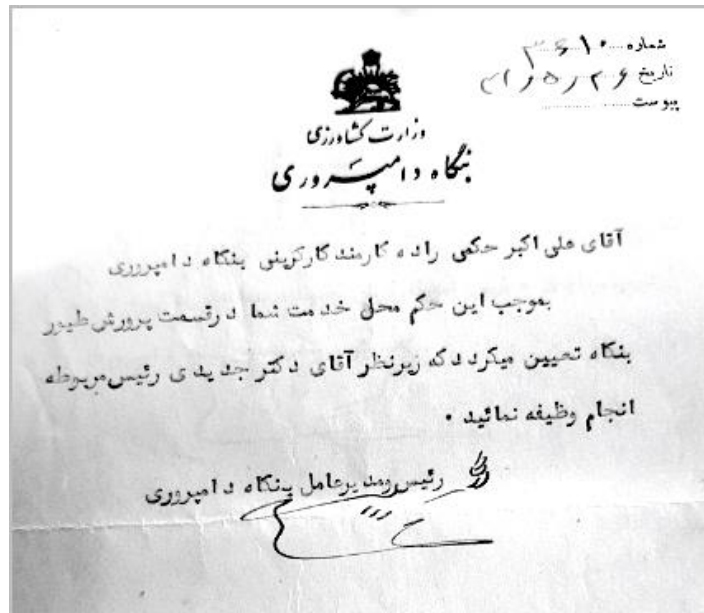 شماره ۳۶۱۰
تاریخ
پیوست
وزارت کشاورزی
بنگاه دامپروری
آقای علی اکبر حکمی زاده کارمند کارگزینی بنگاه دامپروری
بموجب این حکم محل خدمت شما درقسمت پرورش طیور
بنگاه تعیین میگردد که زیرنظر آقای دکتر جدیدی رئیس مربوطه
انجام وظیفه نمائید .
رئیس ومدیرعامل بنگاه دامپروری